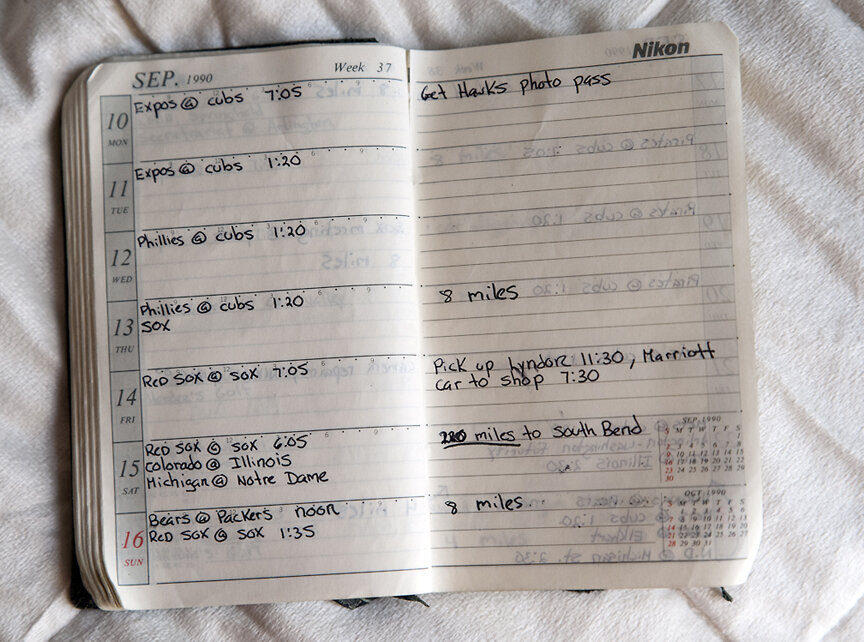 SEP. 1990
Week 37
10
MON
Expos @ Cubs 7:05
11
TUE
Expos @ Cubs 1:20
12
WED
Phillies @ Cubs 1:20
13
THU
Phillies @ Cubs 1:20
SOX
14
FRI
Red Sox @ Sox 7:05
15
SAT
Red Sox @ Sox 6:05
Colorado @ Illinois
Michigan @ Notre Dame
16
SUN
Bears @ Packers noon
Red Sox @ Sox 1:35
Nikon
Get Hawks photo pass
8 miles
Pick up Lyndorf 11:30, Marriott
car to shop 7:30
miles to South Bend
8 miles
SEP 1990
S M T W T F S
1
2 3 4 5 6 7 8
9 10 11 12 13 14 15
16 17 18 19 20 21 22
23 24 25 26 27 28 29
30
OCT 1990
S M T W T F S
1 2 3 4 5 6
7 8 9 10 11 12 13
14 15 16 17 18 19 20
21 22 23 24 25 26 27
28 29 30 31